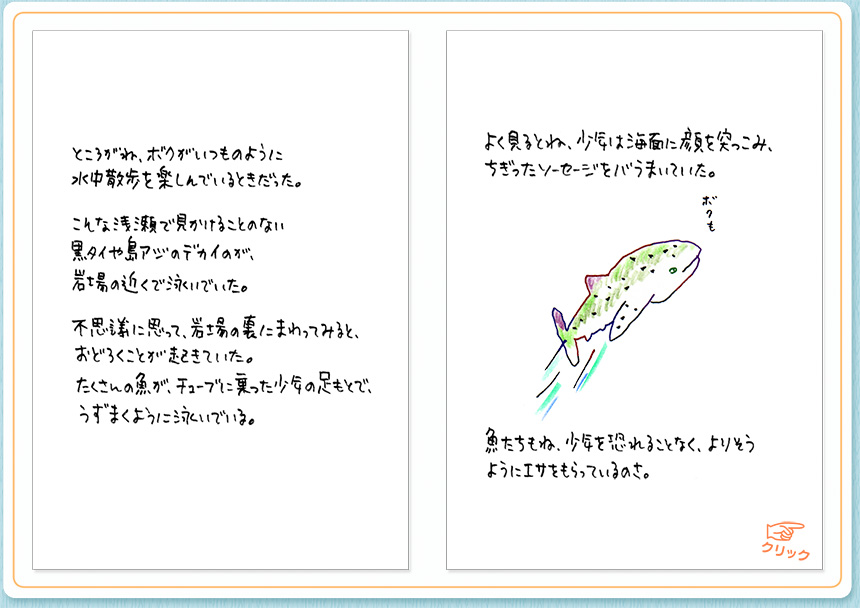 ところがね、ボクがいつものように
水中散歩を楽しんでいるときだった。
こんな浅瀬で見かけることのない
黒タイや島アジのデカイのが、
岩場の近くで泳いでいた。
不思議に思って、岩場の裏にまわってみると、
おどろくことが起きていた。
たくさんの魚が、チューブに乗った少年の足もとで、
うずまくように泳いでいる。
よく見るとね、少年は海面に顔を突っこみ、
ちぎったソーセージをバラまいていた。
ボクも
魚たちもね、少年を恐れることなく、よりそう
ようにエサをもらっているのさ。
クリック